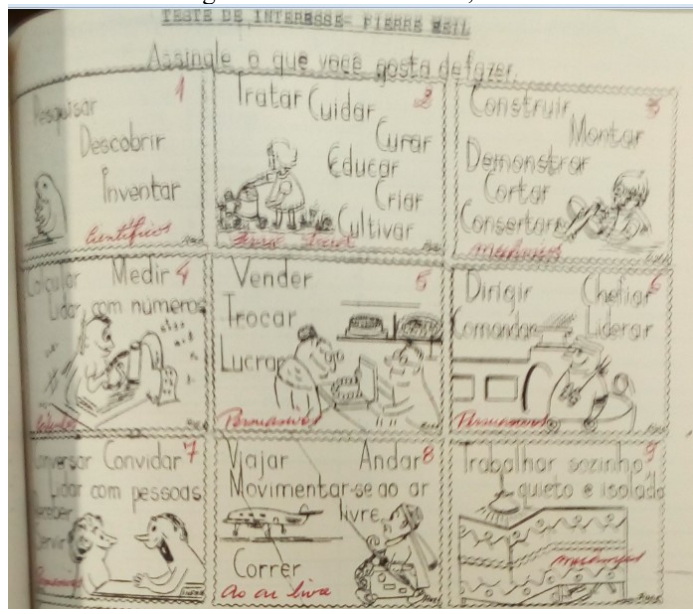 TESTE DE INTERESSE- PIERRE WEIL
Assinale o que você gosta de fazer.
1
Pesquisar
Descobrir
Inventar
Científicos
2
Tratar Cuidar
Curar
Educar
Criar
Cultivar
3
Construir
Montar
Demonstrar
Cortar
Consertar
mecânicos
4
Calcular Medir
Lidar com números
5
Vender
Trocar
Lucrar
Persuasivos
6
Dirigir Chefiar
Comandar Liderar
Persuasivos
7
Conversar Convidar
Lidar com pessoas
Receber
Servir
Persuasivos
8
Viajar Andar
Movimentar-se ao ar
livre
Correr
Ao ar livre
9
Trabalhar sozinho
quieto e isolado